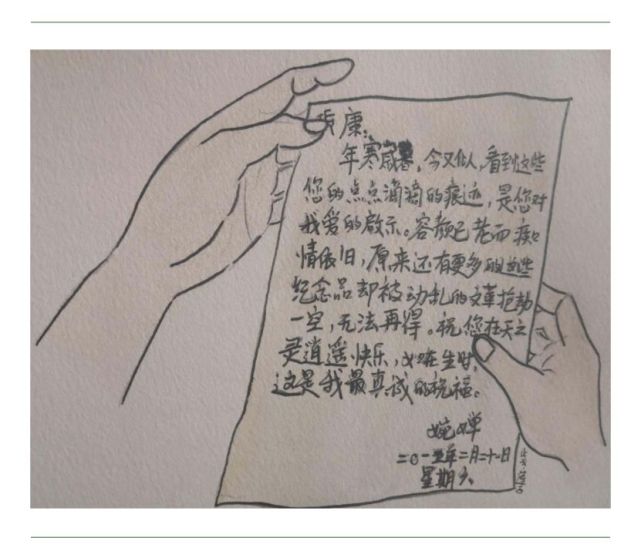 康：
年寒岁暮，今又似人，看到这些
您的点点滴滴的痕迹，是您对
我爱的启示。容颜已老而痴
情依旧，原来还有更多的这些
纪念品却被动乱的文革抢劫
一空，无法再得。祝您在天之
灵逍遥快乐，如在生时，
这是我最真诚的祝福。
婉婵
二〇一五年二月二十一日
星期六